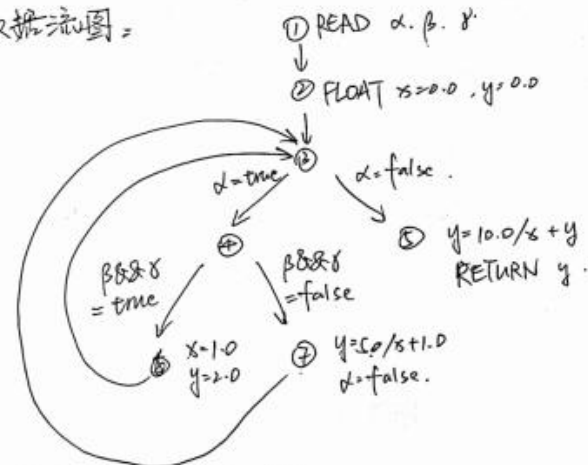 据流图:
① READ α. β. γ.
② FLOAT x=0.0 , y=0.0
③
α=true
α=false.
④
⑤ y=10.0/x + y
RETURN y.
β&&γ
= true
β&&γ
=false
⑥ x=1.0
y=2.0
⑦ y=5.0/x+1.0
α=false.